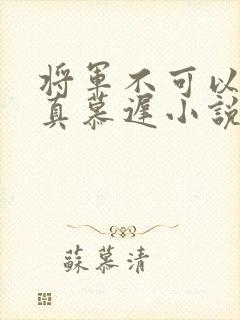 将軍不可以
真慕遲小説
蘇慕清